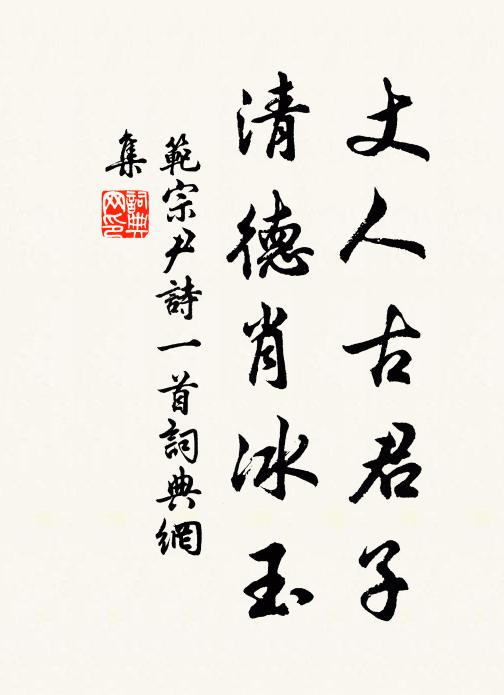 丈人古君子
清德肖冰玉
範宗尹詩一首詞典網
集
詞典
网印